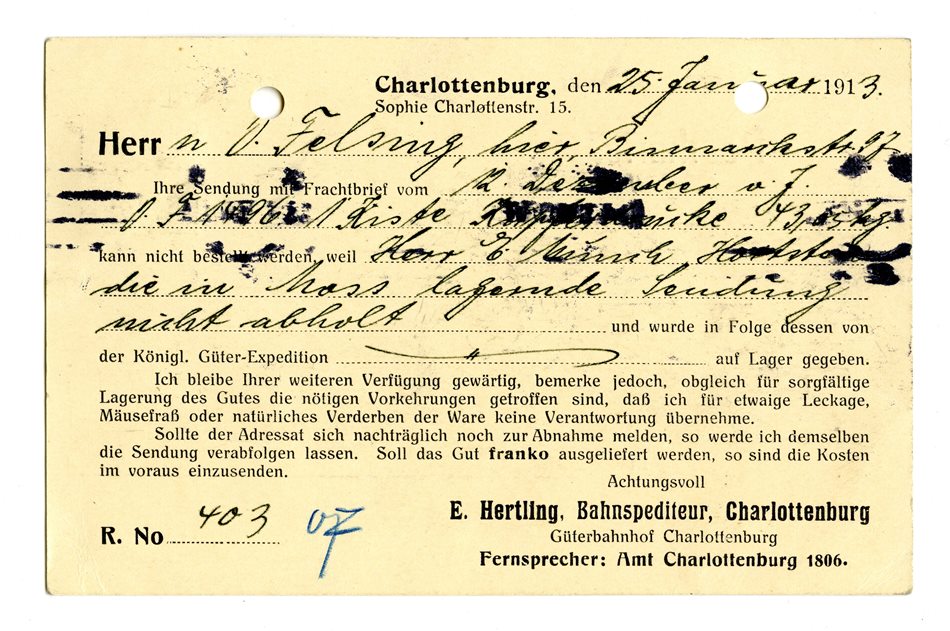 Charlottenburg, den 25. Januar 1913.
Sophie Charlottenstr. 15.
Herrn O. Felsing, hier, Bismarckstr.
Ihre Sendung mit Frachtbrief vom 12. Dezember v. J.
O. F. 1 Kiste 43,
kann nicht bestellt werden, weil Herr E. Munch,
die in Moss lagernde Sendung
nicht abholt und wurde in Folge dessen von
der Königl. Güter-Expedition auf Lager gegeben.
Ich bleibe Ihrer weiteren Verfügung gewärtig, bemerke jedoch, obgleich für sorgfältige
Lagerung des Gutes die nötigen Vorkehrungen getroffen sind, daß ich für etwaige Leckage,
Mäusefraß oder natürliches Verderben der Ware keine Verantwortung übernehme.
Sollte der Adressat sich nachträglich noch zur Abnahme melden, so werde ich demselben
die Sendung verabfolgen lassen. Soll das Gut franko ausgeliefert werden, so sind die Kosten
im voraus einzusenden.
Achtungsvoll
E. Hertling, Bahnspediteur, Charlottenburg
Güterbahnhof Charlottenburg
Fernsprecher: Amt Charlottenburg 1806.
R. No 403